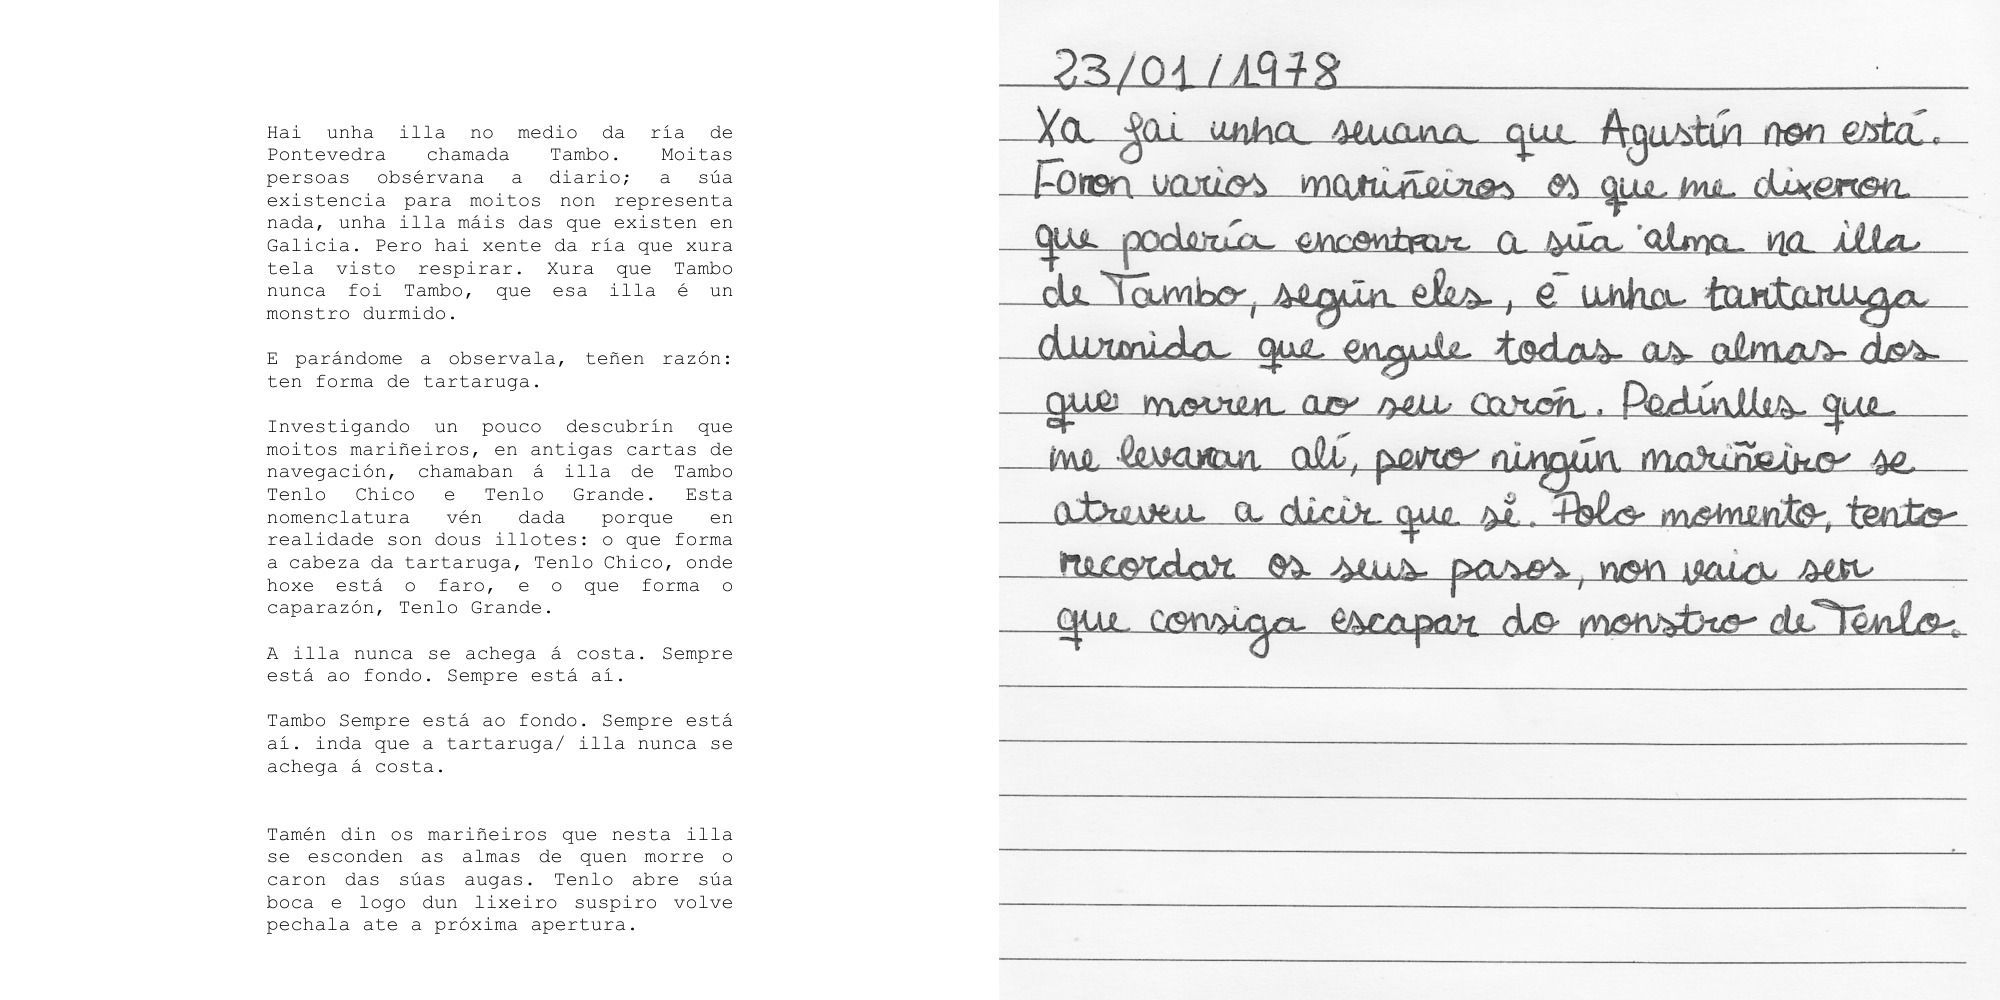 Hai unha illa no medio da ría de
Pontevedra chamada Tambo. Moitas
persoas obsérvana a diario; a súa
existencia para moitos non representa
nada, unha illa máis das que existen en
Galicia. Pero hai xente da ría que xura
tela visto respirar. Xura que Tambo
nunca foi Tambo, que esa illa é un
monstro durmido.
E parándome a observala, teñen razón:
ten forma de tartaruga.
Investigando un pouco descubrín que
moitos mariñeiros, en antigas cartas de
navegación, chamaban á illa de Tambo
Tenlo Chico e Tenlo Grande. Esta
nomenclatura vén dada porque en
realidade son dous illotes: o que forma
a cabeza da tartaruga, Tenlo Chico, onde
hoxe está o faro, e o que forma o
caparazón, Tenlo Grande.
A illa nunca se achega á costa. Sempre
está ao fondo. Sempre está aí.
Tambo Sempre está ao fondo. Sempre está
aí. inda que a tartaruga/ illa nunca se
achega á costa.
Tamén din os mariñeiros que nesta illa
se esconden as almas de quen morre o
caron das súas augas. Tenlo abre súa
boca e logo dun lixeiro suspiro volve
pechala ate a próxima apertura.
23/01/1978
Xa fai unha semana que Agustín non está.
Foron varios mariñeiros os que me dixeron
que podería encontrar a súa alma na illa
de Tambo, según eles, é unha tartaruga
durmida que engule todas as almas dos
que morren ao seu carón. Pedínlles que
me levaran alí, pero ningún mariñeiro se
atreveu a dicir que si. Polo momento, tento
recordar os seus pasos, non vaia ser
que consiga escapar do monstro de Tenlo.